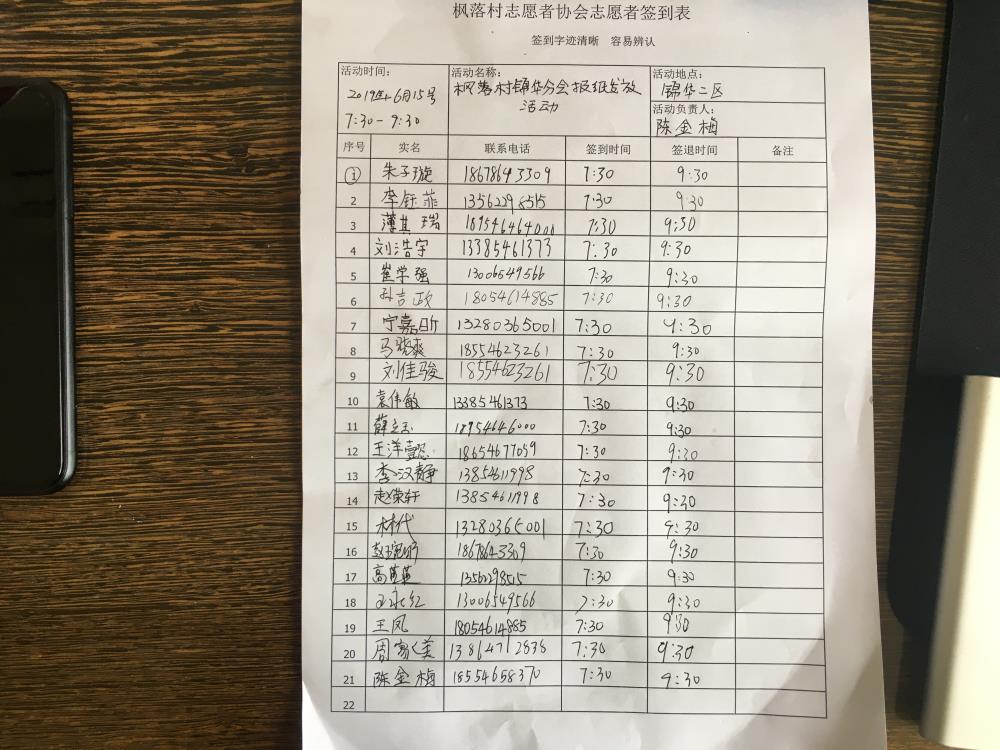 枫落村志愿者协会志愿者签到表
签到字迹清晰 容易辨认
活动时间: 2019年6月15号 7:30-9:30
活动名称: 枫落村锦华分会报纸发放活动
活动地点: 锦华二区
活动负责人: 陈金梅
序号 实名 联系电话 签到时间 签退时间 备注
1 朱子璇 18678643309 7:30 9:30
2 李钰菲 13562298515 7:30 9:30
3 薄其瑞 18954646000 7:30 9:30
4 刘浩宇 13385461373 7:30 9:30
5 崔学强 13006549566 7:30 9:30
6 孙吉政 18054614885 7:30 9:30
7 宁嘉昕 13280365001 7:30 9:30
8 马晓爽 18554623261 7:30 9:30
9 刘佳骏 18554623261 7:30 9:30
10 袁伟敏 13385461373 7:30 9:30
11 薛立玉 18954646000 7:30 9:30
12 王洋懿 18654677059 7:30 9:30
13 李汉静 13854611998 7:30 9:30
14 赵荣轩 13854611998 7:30 9:30
15 林代 13280365001 7:30 9:30
16 18678643309 7:30 9:30
17 高 13562298515 7:30 9:30
18 王永红 13006549566 7:30 9:30
19 王凤 18054614885 7:30 9:30
20 周家美 13864712838 7:30 9:30
21 陈金梅 18554658370 7:30 9:30
22